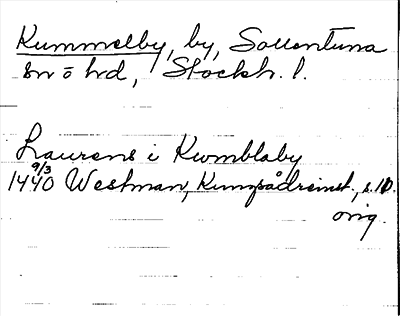 Kummelby, by, Sollentuna
sn o hd, Stockh. l.
Laurens i Kwmblaby
9/3
1440 Westman, Kungsådreinst., s. 10.
orig.